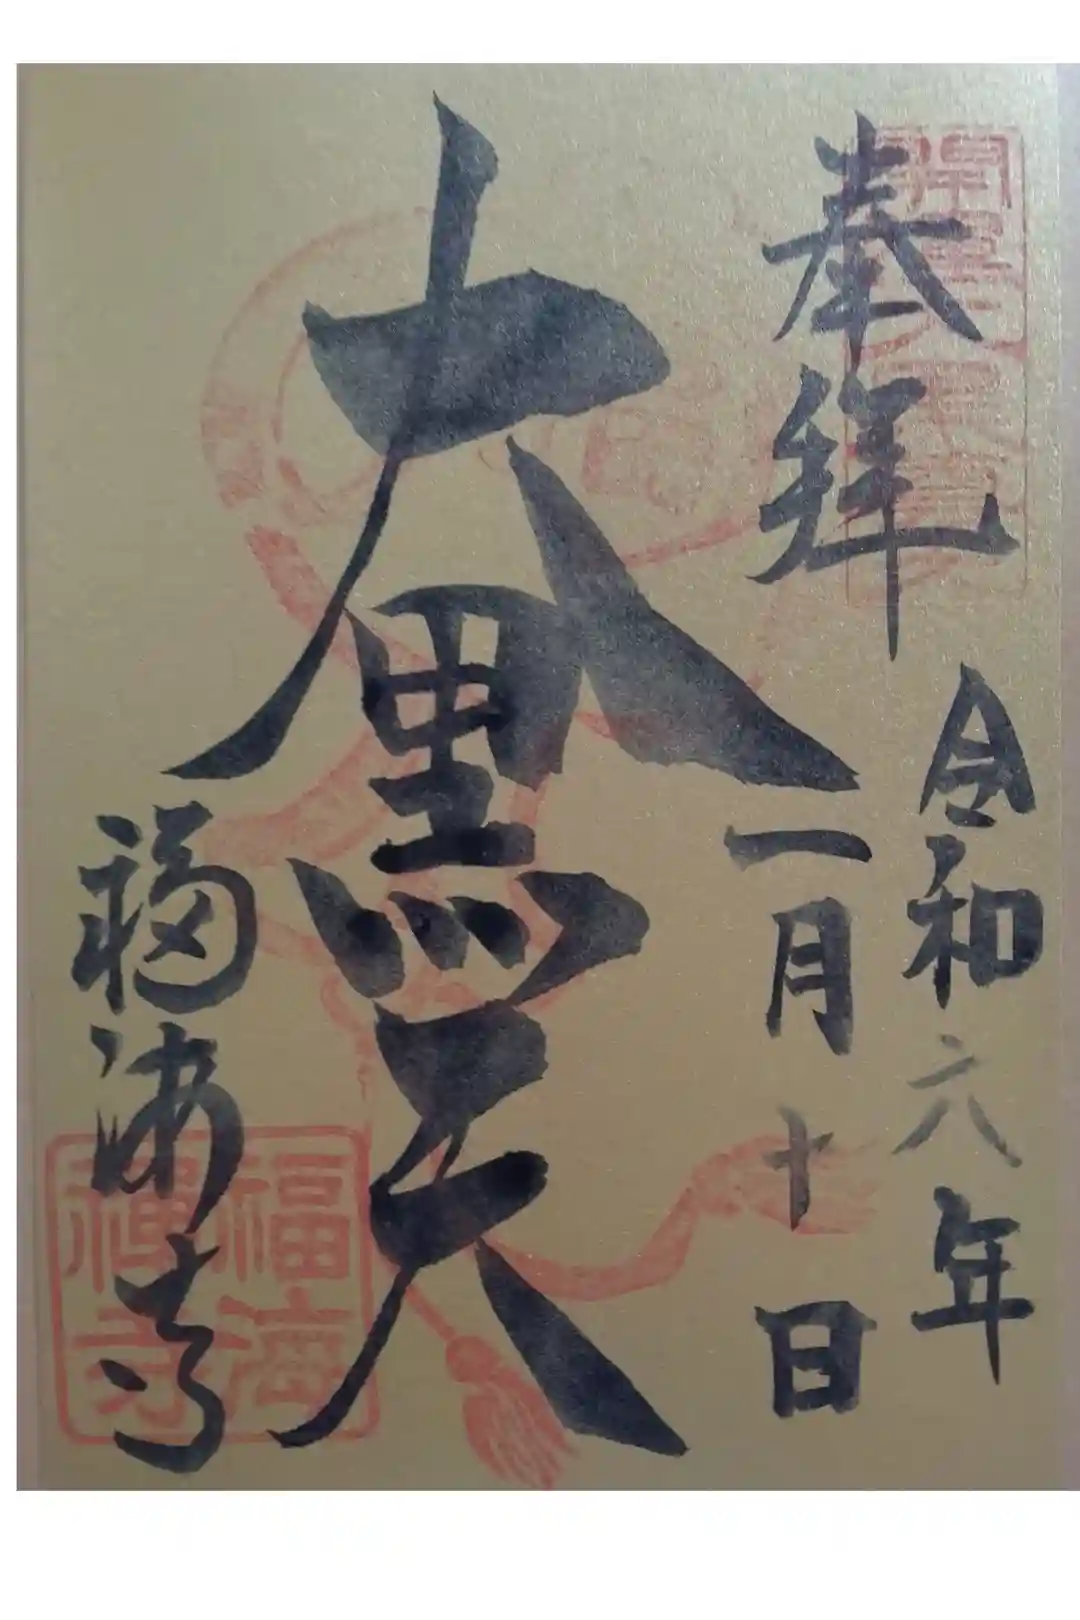 奉拝
令和六年
一月十日
大黒天
福海寺
福海
禅寺